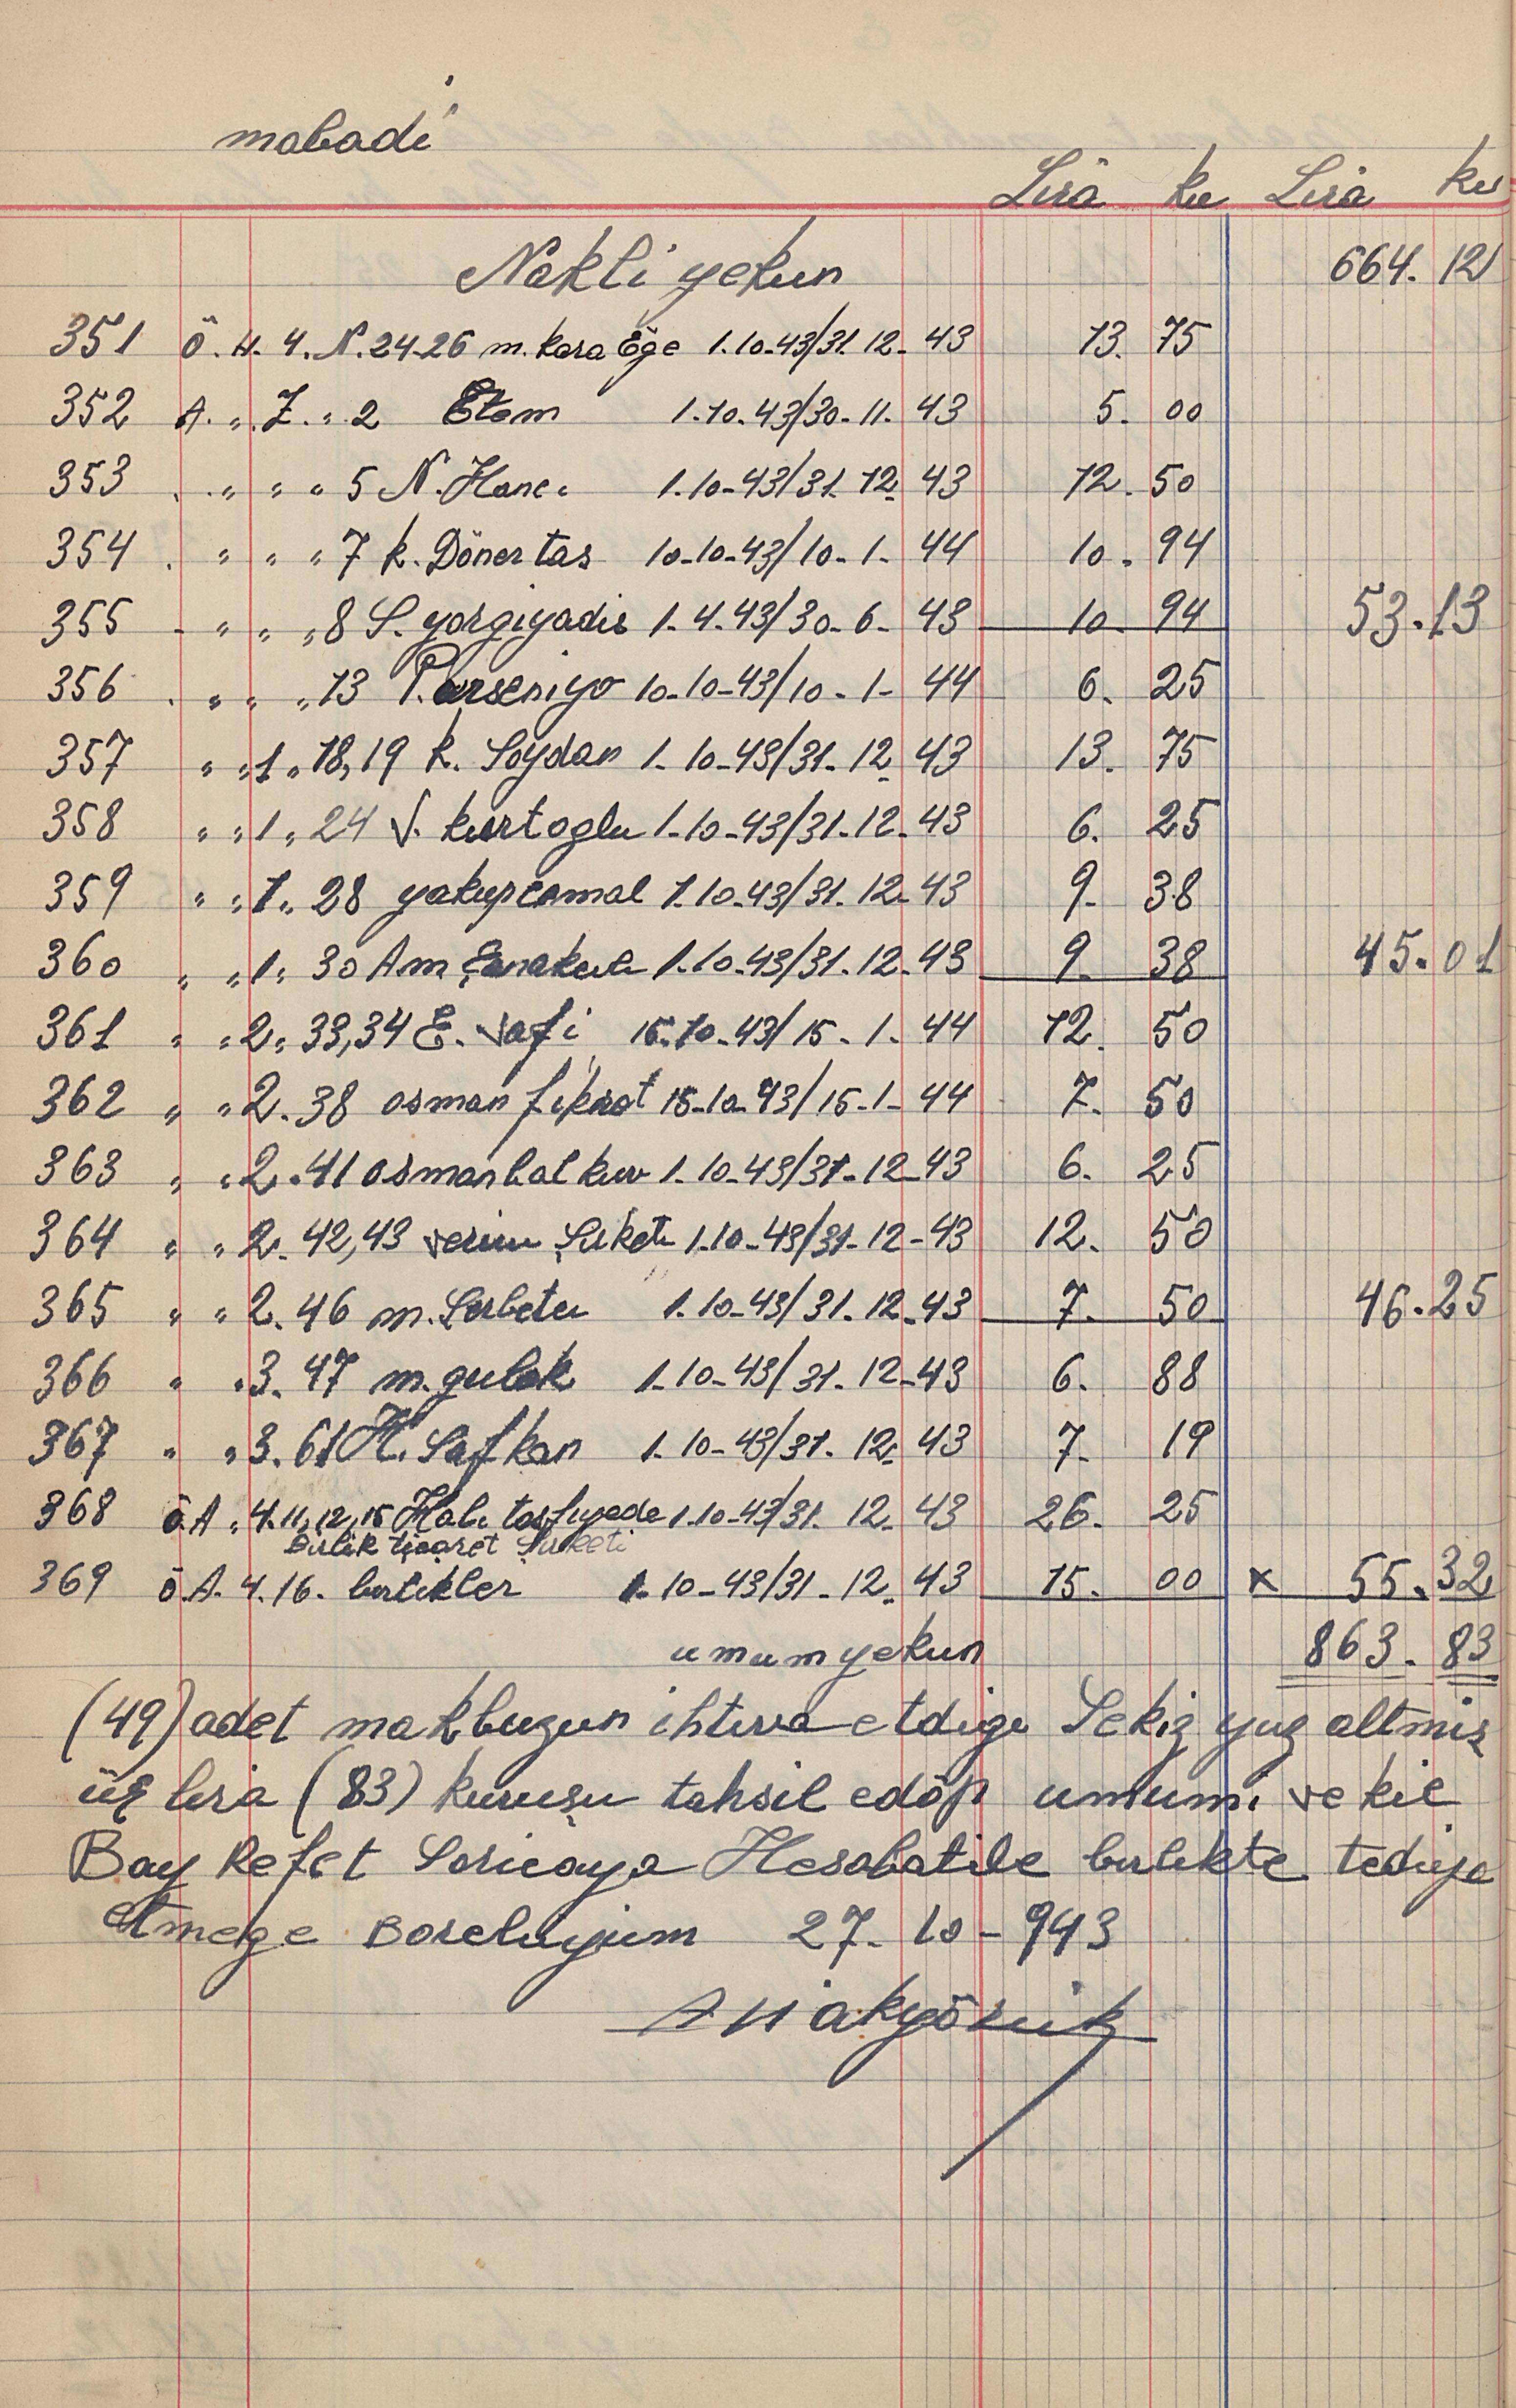 mabadi
Lira ku Lira ku
Nakli yekun 664. 12
351 Ö. H. 4. N. 24-26 m. kara Eğe 1.10-43/31. 12. 43 13. 75
352 A. „ Z. „ 2 Etem 1.10.43/30-11. 43 5. 00
353 . „ „ „ 5 N. Hanci 1.10-43/31. 12. 43 12. 50
354 . „ „ „ 7 k. Dönertas 10-10-43/10-1- 44 10. 94
355 - „ „ „ 8 S. yorgiyadis 1-4-43/30-6- 43 10. 94 53.13
356 . „ „ „ 13 P. arseniyo 10-10-43/10-1- 44 6. 25
357 „ „ 1 „ 18,19 k. Soydan 1-10-43/31-12. 43 13. 75
358 „ „ 1 „ 24 V. kurtoglu 1-10-43/31-12-43 6. 25
359 „ „ 1 „ 28 yakupcemal 1.10-43/31.12.43 9. 38
360 „ „ 1. 30 Am 1.10-43/31.12.43 9. 38 45.01
361 „ „ 2 „ 33,34 E. vafi 15.10-43/15-1- 44 12. 50
362 „ „ 2. 38 osman fikret 15-10-43/15-1- 44 7. 50
363 „ „ 2. 41 osman balkuv 1-10-43/31-12-43 6. 25
364 „ „ 2. 42,43 verim Şirketi 1.10-43/31-12-43 12. 50
365 „ „ 2. 46 m. Serbetci 1.10-43/31-12-43 7. 50 46.25
366 „ „ 3. 47 m. gulek 1-10-43/31-12-43 6. 88
367 „ „ 3. 61 H. Safkan 1-10-43/31-12. 43 7. 19
368 ö. A „ 4. 11, 12, 15 Hali tasfiyede 1.10-43/31. 12. 43 26. 25
Birlik ticaret Şirketi
369 ö. A. 4. 16. birlikler 1-10-43/31-12. 43 15. 00 x 55.32
umum yekun 863. 83
(49) adet makbuzun ihtiva etdigi Sekiz yuz altmis
üç lira (83) kuruşu tahsil edöp umumi vekil
Bay Refet Saricaya Hesabatile birlikte tediye
etmege Borcluyum 27-10-943
A H akyörük